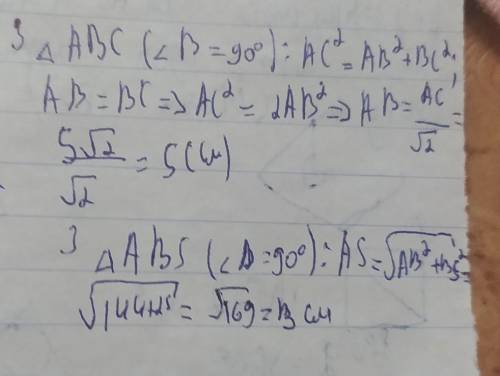 З △ ABC (∠B = 90°): AC² = AB² + BC²;
AB = BC => AC² = 2AB² => AB = AC/√2 =
5√2/√2 = 5 (см)
З △ ABS (∠B = 90°): AS = √AB² + BS² =
√144+25 = √169 = 13 см